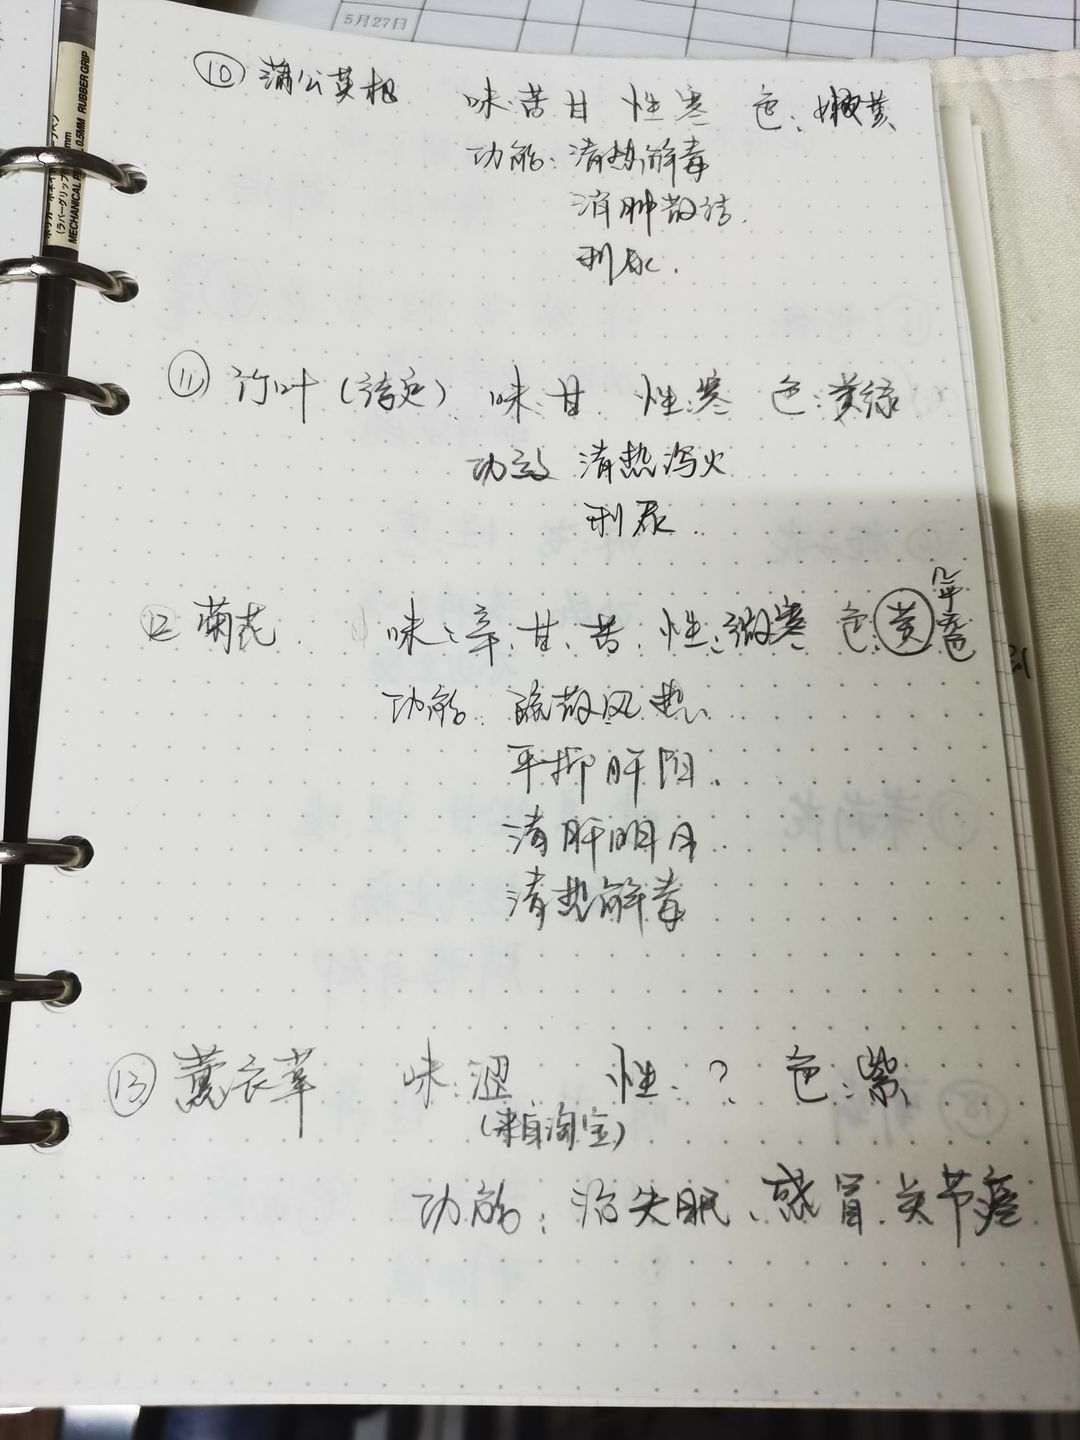 5月27日
MECHANICAL P 0.5MM RUBBER GRIP
(ラバーグリップ
⑩ 蒲公英根 味:苦甘 性:寒 色:嫩黄
功能:清热解毒
消肿散结.
利尿.
⑪ 竹叶 味:甘 性:寒 色:黄绿
功效 清热泻火
利尿.
12 菊花 味:辛、甘、苦 性:微寒 色:黄 几乎无色
功能:疏散风热.
平抑肝阳.
清肝明目
清热解毒
⑬ 薰衣草 味:涩 性:? 色:紫
(来自淘宝)
功能:治失眠、感冒.关节疼